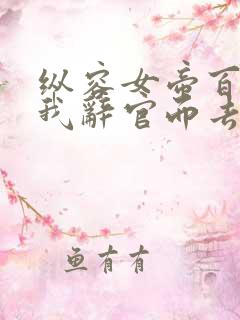 纵容女帝百
我辞官而去
鱼有有